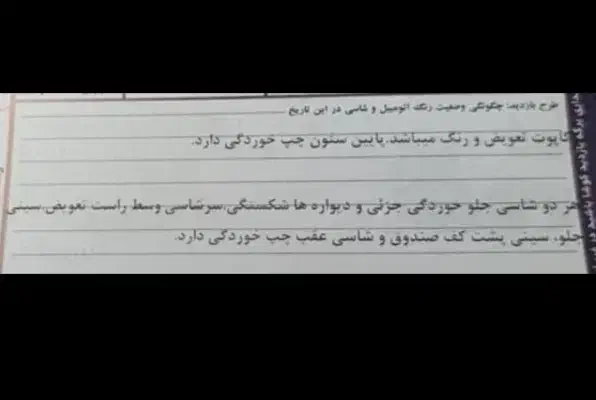 طرح بازدید: چگونگی وضعیت رنگ اتومبیل و شاسی در این تاریخ
کاپوت تعویض و رنگ میباشد.پایین ستون چپ خوردگی دارد.
هر دو شاسی جلو خوردگی جزئی و دیواره ها شکستگی.سرشاسی وسط راست تعویض.سینی
جلو، سینی پشت کف صندوق و شاسی عقب چپ خوردگی دارد.